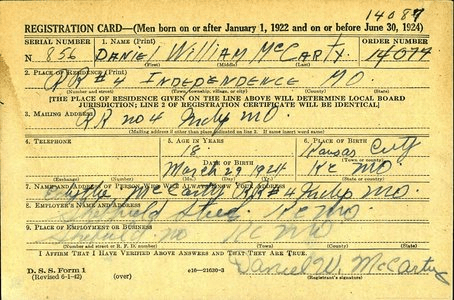 14087
REGISTRATION CARD—(Men born on or after January 1, 1922 and on or before June 30, 1924)
SERIAL NUMBER 1. NAME (Print) ORDER NUMBER
N 856 DANIEL William McCarty 14077
(First) (Middle) (Last)
2. PLACE OF RESIDENCE (Print)
RR #4 INDEPENDENCE MO.
(Number and street) (Town, township, village, or city) (County) (State)
[THE PLACE OF RESIDENCE GIVEN ON THE LINE ABOVE WILL DETERMINE LOCAL BOARD
JURISDICTION; LINE 2 OF REGISTRATION CERTIFICATE WILL BE IDENTICAL]
3. MAILING ADDRESS
RR no 4 Indep MO.
[Mailing address if other than place indicated on line 2. If same insert word same]
4. TELEPHONE 5. AGE IN YEARS 6. PLACE OF BIRTH
18 Kansas City
DATE OF BIRTH (Town or county)
March 29 1924 KC MO
(Exchange) (Number) (Mo.) (Day) (Yr.) (State or country)
7. NAME AND ADDRESS OF PERSON WHO WILL ALWAYS KNOW YOUR ADDRESS
McCarty RR #4 Indep MO.
8. EMPLOYER'S NAME AND ADDRESS
Sheffield Steel KC MO.
9. PLACE OF EMPLOYMENT OR BUSINESS
Sheffield MO KC MO
(Number and street or R. F. D. number) (Town) (County) (State)
I AFFIRM THAT I HAVE VERIFIED ABOVE ANSWERS AND THAT THEY ARE TRUE.
D. S. S. Form 1
(Revised 6-1-42) (over) 16—21630-2 Daniel W. McCarty
(Registrant's signature)